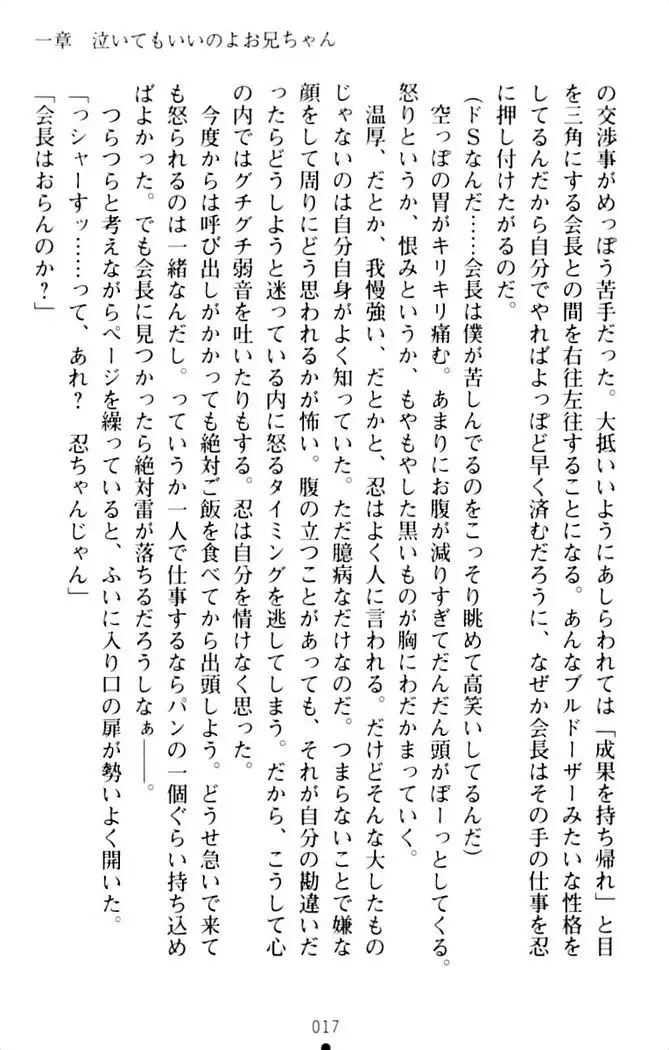 一章　泣いてもいいのよお兄ちゃん
の交渉事がめっぽう苦手だった。大抵いいようにあしらわれては「成果を持ち帰れ」と目
を三角にする会長との間を右往左往することになる。あんなブルドーザーみたいな性格を
してるんだから自分でやればよっぽど早く済むだろうに、なぜか会長はその手の仕事を忍
に押し付けたがるのだ。
（ドSなんだ……会長は僕が苦しんでるのをこっそり眺めて高笑いしてるんだ）
　空っぽの胃がキリキリ痛む。あまりにお腹が減りすぎてだんだん頭がぼーっとしてくる。
怒りというか、恨みというか、もやもやした黒いものが胸にわだかまっていく。
　温厚、だとか、我慢強い、だとかと、忍はよく人に言われる。だけどそんな大したもの
じゃないのは自分自身がよく知っていた。ただ臆病なだけなのだ。つまらないことで嫌な
顔をして周りにどう思われるかが怖い。腹の立つことがあっても、それが自分の勘違いだ
ったらどうしようと迷っている内に怒るタイミングを逃してしまう。だから、こうして心
の内ではグチグチ弱音を吐いたりもする。忍は自分を情けなく思った。
　今度からは呼び出しがかかっても絶対ご飯を食べてから出頭しよう。どうせ急いで来て
も怒られるのは一緒なんだし。っていうか一人で仕事するならパンの一個ぐらい持ち込め
ばよかった。でも会長に見つかったら絶対雷が落ちるだろうしなぁ――。
　つらつらと考えながらページを繰っていると、ふいに入り口の扉が勢いよく開いた。
「っシャーすッ……って、あれ？　忍ちゃんじゃん」
「会長はおらんのか？」
017